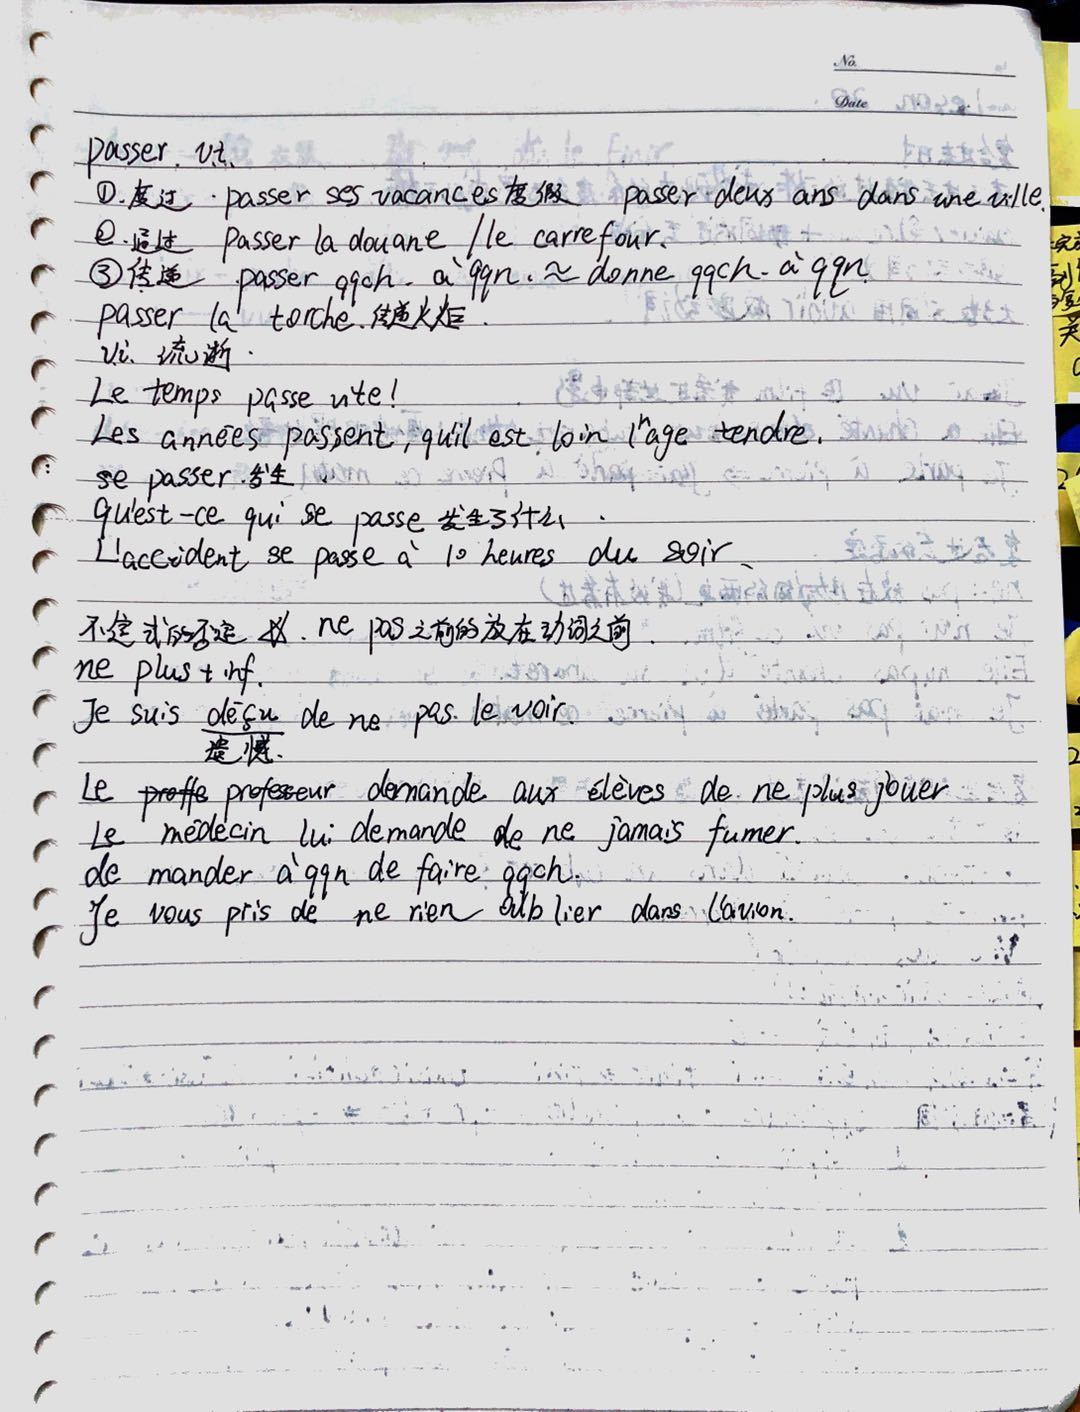 No.
Date
passer. v.t.
①.度过 . passer ses vacances 度假 passer deux ans dans une ville.
②.通过 passer la douane / le carrefour.
③传递 passer qqch. à qqn. ≈ donne qqch. à qqn
passer la torche. 传递火炬.
v.i. 流逝.
Le temps passe vite!
Les années passent, qu'il est loin l'age tendre.
se passer. 发生.
Qu'est-ce qui se passe 发生了什么.
L'accident se passe à 10 heures du soir.
不定式的否定 ne pas 之前的放在动词之前.
ne plus + inf.
Je suis déçu de ne pas le voir.
遗憾.
Le proffe professeur demande aux élèves de ne plus jouer
Le médecin lui demande de ne jamais fumer.
de mander à qqn de faire qqch.
Je vous pris de ne rien oublier dans l'avion.